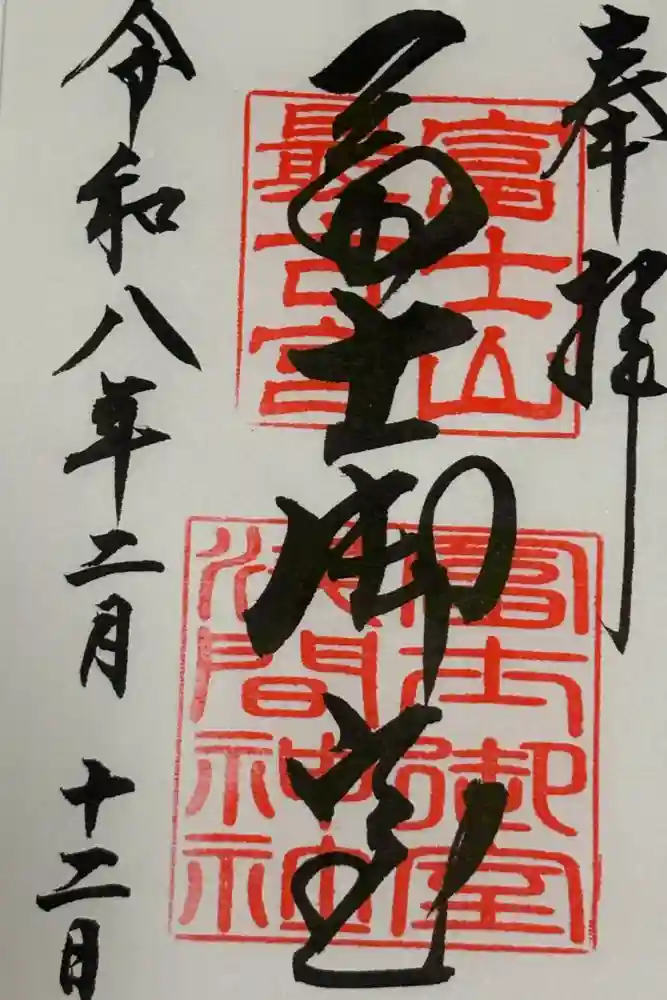 奉拝
冨士御室
富士山
最古宮
富士御室
淺間神社
令和八年二月十二日